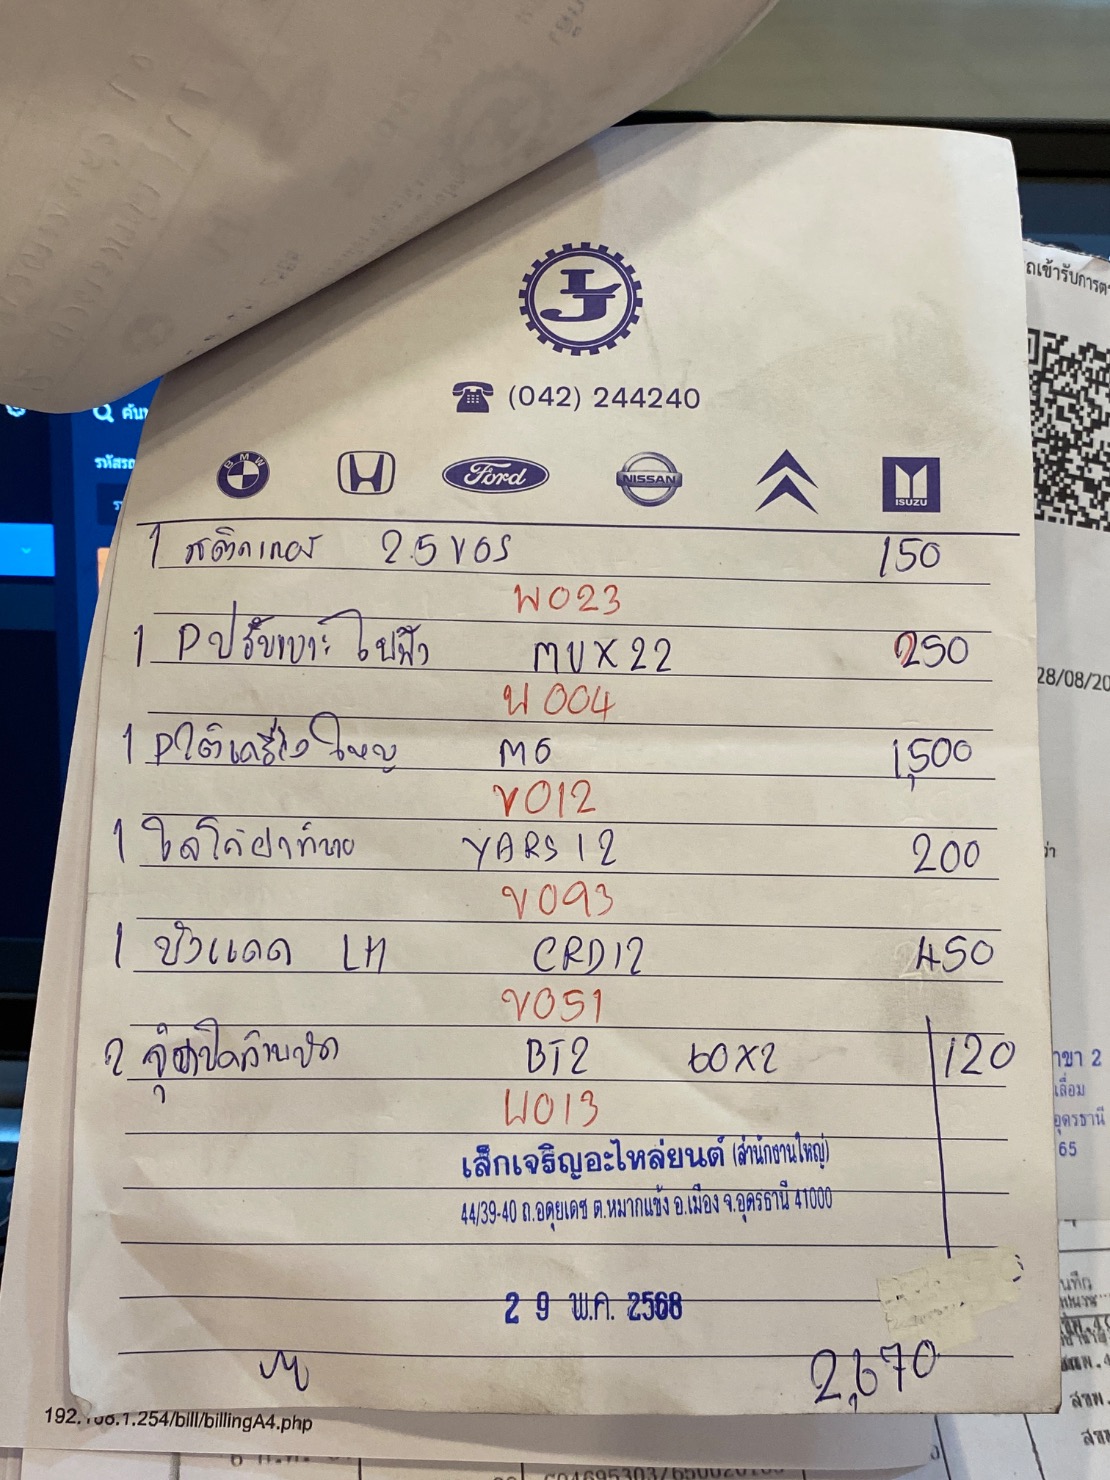 ค้น
รหัสรถ
ถเข้ารับการตร
LJ
(042) 244240
BMW
Ford
NISSAN
ISUZU
1 สติกเกอร์ 2.5 VGS 150
W023
1 Pปรับเบาะไฟฟ้า MUX22 250
W004
28/08/20
1 Pใต้เครื่องใหญ่ M6 1,500
V012
1 ไล่โก่ฝาท้าย YARS12 200
V093
1 บังแดด LH CRD12 450
V051
2 BT2 60X2 120
W013
าขา 2
เลื่อม
อุดรธานี
65
เล็กเจริญอะไหล่ยนต์ (สำนักงานใหญ่)
44/39-40 ถ.อดุยเดช ต.หมากแข้ง อ.เมือง จ.อุดรธานี 41000
29 พ.ค. 2568
2,670
192.168.1.254/bill/billingA4.php